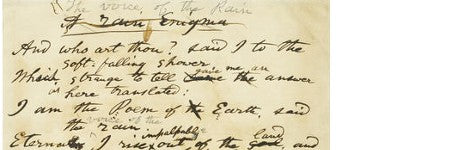 The voice, of the Rain
A rain Enigma
And who art thou? said I to the
soft-falling shower
Which, strange to tell gave me an the answer
as here translated:
I am the Poem of the Earth, said
the voice of the
the rain
impalpable
Eternal I rise out, of the land and